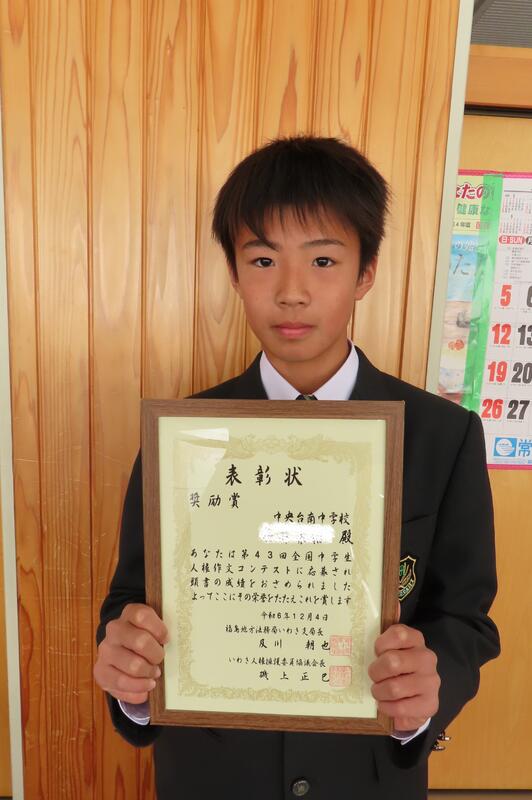 表彰状
奨励賞
中央台南中学校
殿
あなたは第43回全国中学生
人権作文コンテストに応募され
頭書の成績をおさめられました
よってここにその栄誉をたたえこれを賞します
令和6年12月4日
福島地方法務局いわき支局長
及川 朝也
いわき人権擁護委員協議会長
磯上正巳
たの
健康な
日 SUN 月
5 6
12 13
19 20
26 27
常